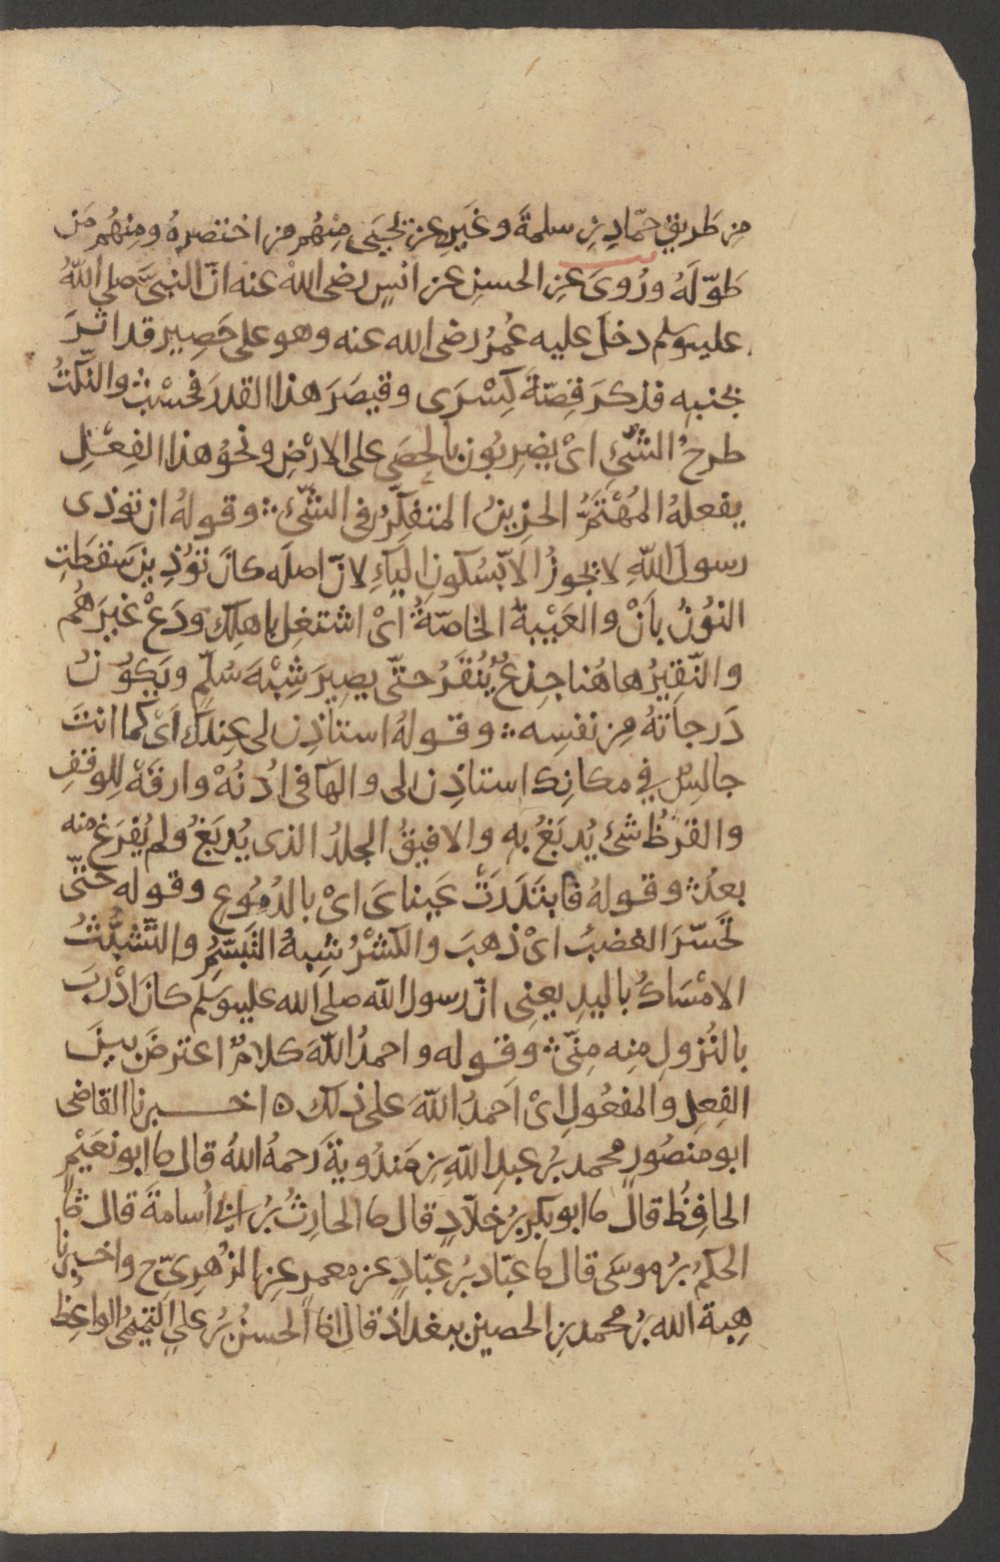 من طريق حمّاد بن سلمة وغيره عن يحيى منهم من اختصره ومنهم من
طوّله ورُوى عن الحسن عن انس رضى الله عنه انّ النبىّ صلى الله
عليه وسلم دخل عليه عُمرُ رضى الله عنه وهو على حَصِير قد اثرَ
بجنبه فذكرَ قصّةَ كِسْرَى وقيصَرَ هذا القدر فحسْبُ والنّكتُ
طرحُ الشّئِ اىْ يضرِبُون بالحصَى على الارْضِ ونحوُ هذا الفِعْلِ
يفعلهُ المُهْتَمُّ الحزينُ المتفكّرُ فى الشّئ ؞ وقولهُ ان تؤذى
رسولَ اللّهِ لا يجوزُ الاّ بسُكونِ اليَاءِ لانّ اصلَه كانَ تؤذِينَ سَقطَتِ
النوُنُ بأنْ والعَيْبةُ الخاصّةُ اىْ اشتغِل باهلِك ودَعْ غيرَهُم
والنّقِيرُ هاهُنا جِذعٌ يُنْقَرُ حتّى يصِيرَ شِبْهَ سُلّمٍ ويَكوُنُ
دَرجاتهُ مِن نفسِه ؞ وقولهُ استأذِن لى عِندَك اَىْ كما انتَ
جالِسٌ في مكانِك استاذِن لى والهَا فى ادْنُهْ وارقَهْ لِلوقفِ
والقرَظُ شئ يُدبَغُ بهِ والافيقُ الجلدُ الذى يُدبَغُ ولم يُفرَغ منه
بعدُ ؞ وقولهُ فابتَدَرَتْ عَيناىَ اىْ بالدُموُعِ وقوله حَتّى
تحَسّرَ الغضبُ اىْ ذهبَ والكَشْرُ شِبهُ التَبَسّمِ والتّشبُّثُ
الامْسَاكُ باليدِ يعنِى انّ رسول اللّه صلى الله عليه وسلم كانَ ادْربَ
بالنُزولِ مِنه مِنّى ؞ وقوله واحمدُ اللّهَ كلامٌ اعترضَ بينَ
الفِعلِ والمفعُولِ اىْ اَحمدُ اللّهَ على ذلك ه اخبرنا القاضى
ابو منصُورٍ محمد بن عبدِ اللّهِ بن مَندُويةَ رَحمهُ اللهُ قال ثا ابو نعَيْم
الحافِظُ قال ثا ابو بكر بنُ خلاّدٍ قال ثا الحارِثُ بنُ ابى أسامةَ قال ثا
الحكمُ بنُ موسَى قال ثا عَبّاد بنُ عَبّادٍ عن معمرٍ عنِ الزهرىّ ح واخبرنا
هِبة الله بنُ محمد بنِ الحصين ببغداذ قال انا الحسنُ بنُ علي التميمىُ الواعِظ